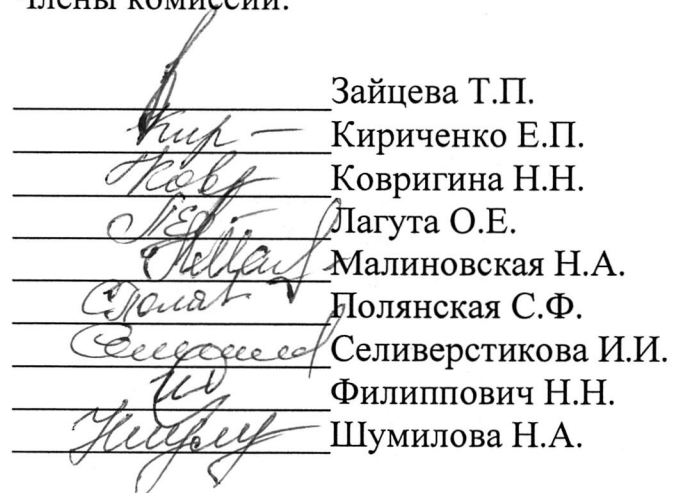 Члены комиссии:
Зайцева Т.П.
Кир- Кириченко Е.П.
Ковр Ковригина Н.Н.
Лагута О.Е.
Малиновская Н.А.
СПоляв Полянская С.Ф.
Селиверстикова И.И.
Филиппович Н.Н.
Шумилова Н.А.